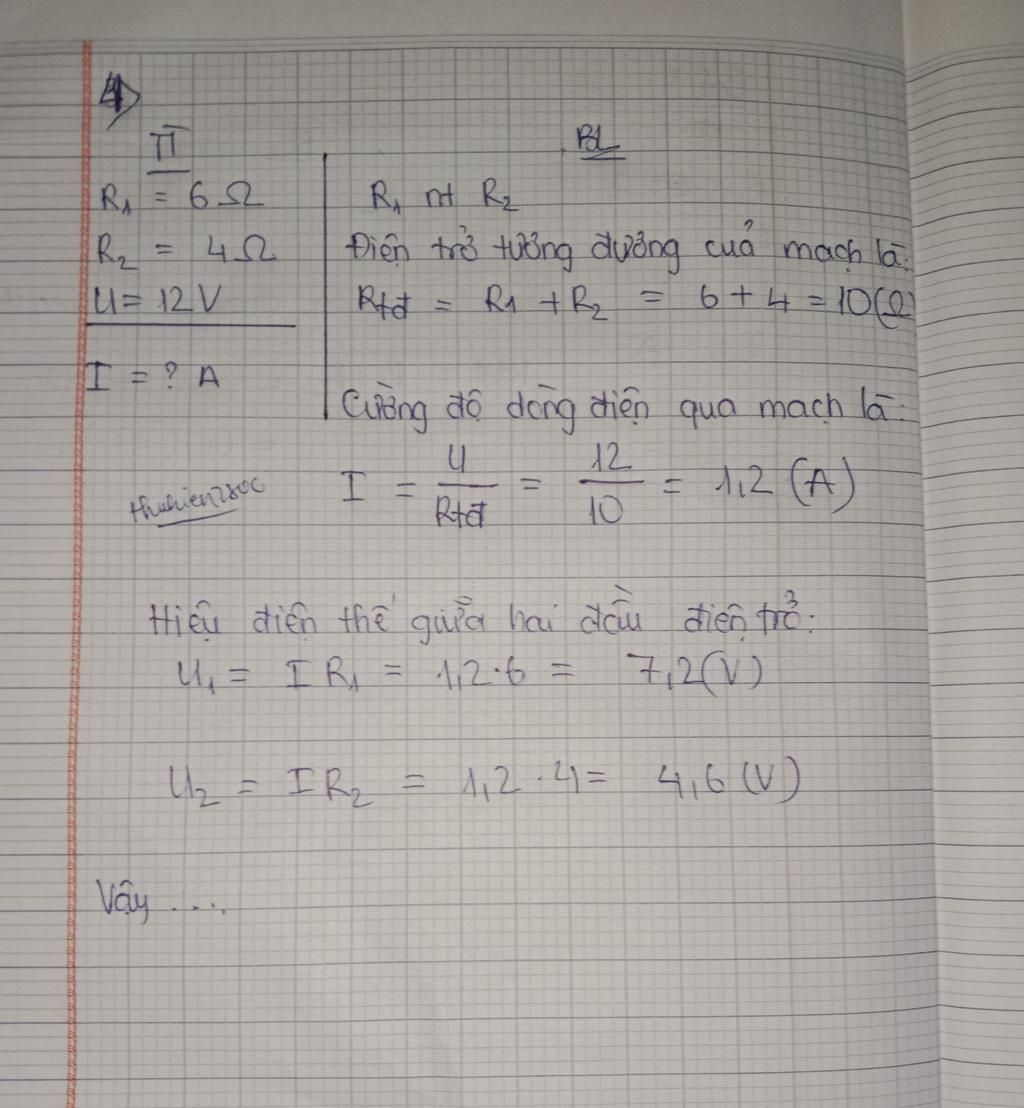 4)
TT
R1 = 6Ω
R2 = 4Ω
U = 12V
I = ? A
BL
R1 nt R2
Điện trở tương đương của mạch là:
Rtđ = R1 + R2 = 6 + 4 = 10(Ω)
Cường độ dòng điện qua mạch là:
I = U/Rtđ = 12/10 = 1,2 (A)
Hiệu điện thế giữa hai đầu điện trở:
U1 = I R1 = 1,2 . 6 = 7,2(V)
U2 = I R2 = 1,2 . 4 = 4,6 (V)
Vậy ....